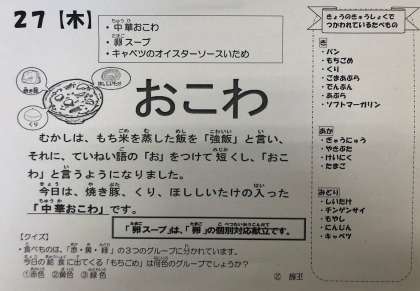 27【木】
・中華おこわ
・卵スープ
・キャベツのオイスターソースいため
焼き豚
ほししいたけ
くり
おこわ
むかしは、もち米を蒸した飯を「強飯」と言い、
それに、ていねい語の「お」をつけて短くし、「おこ
わ」と言うようになりました。
今日は、焼き豚、くり、ほししいたけの入った
「中華おこわ」です。
「卵スープ」は、「卵」の個別対応献立です。
【クイズ】
・食べものは、「赤・黄・緑」の3つのグループに分かれています。
今日の給食に出てくる「もちごめ」は何色のグループでしょうか？
①赤色 ②黄色 ③緑色
きょうのきゅうしょくで
つかわれているたべもの
き
・パン
・もちごめ
・くり
・ごまあぶら
・でんぷん
・あぶら
・ソフトマーガリン
あか
・ぎゅうにゅう
・やきぶた
・けいにく
・たまご
みどり
・しいたけ
・チンゲンサイ
・もやし
・にんじん
・キャベツ